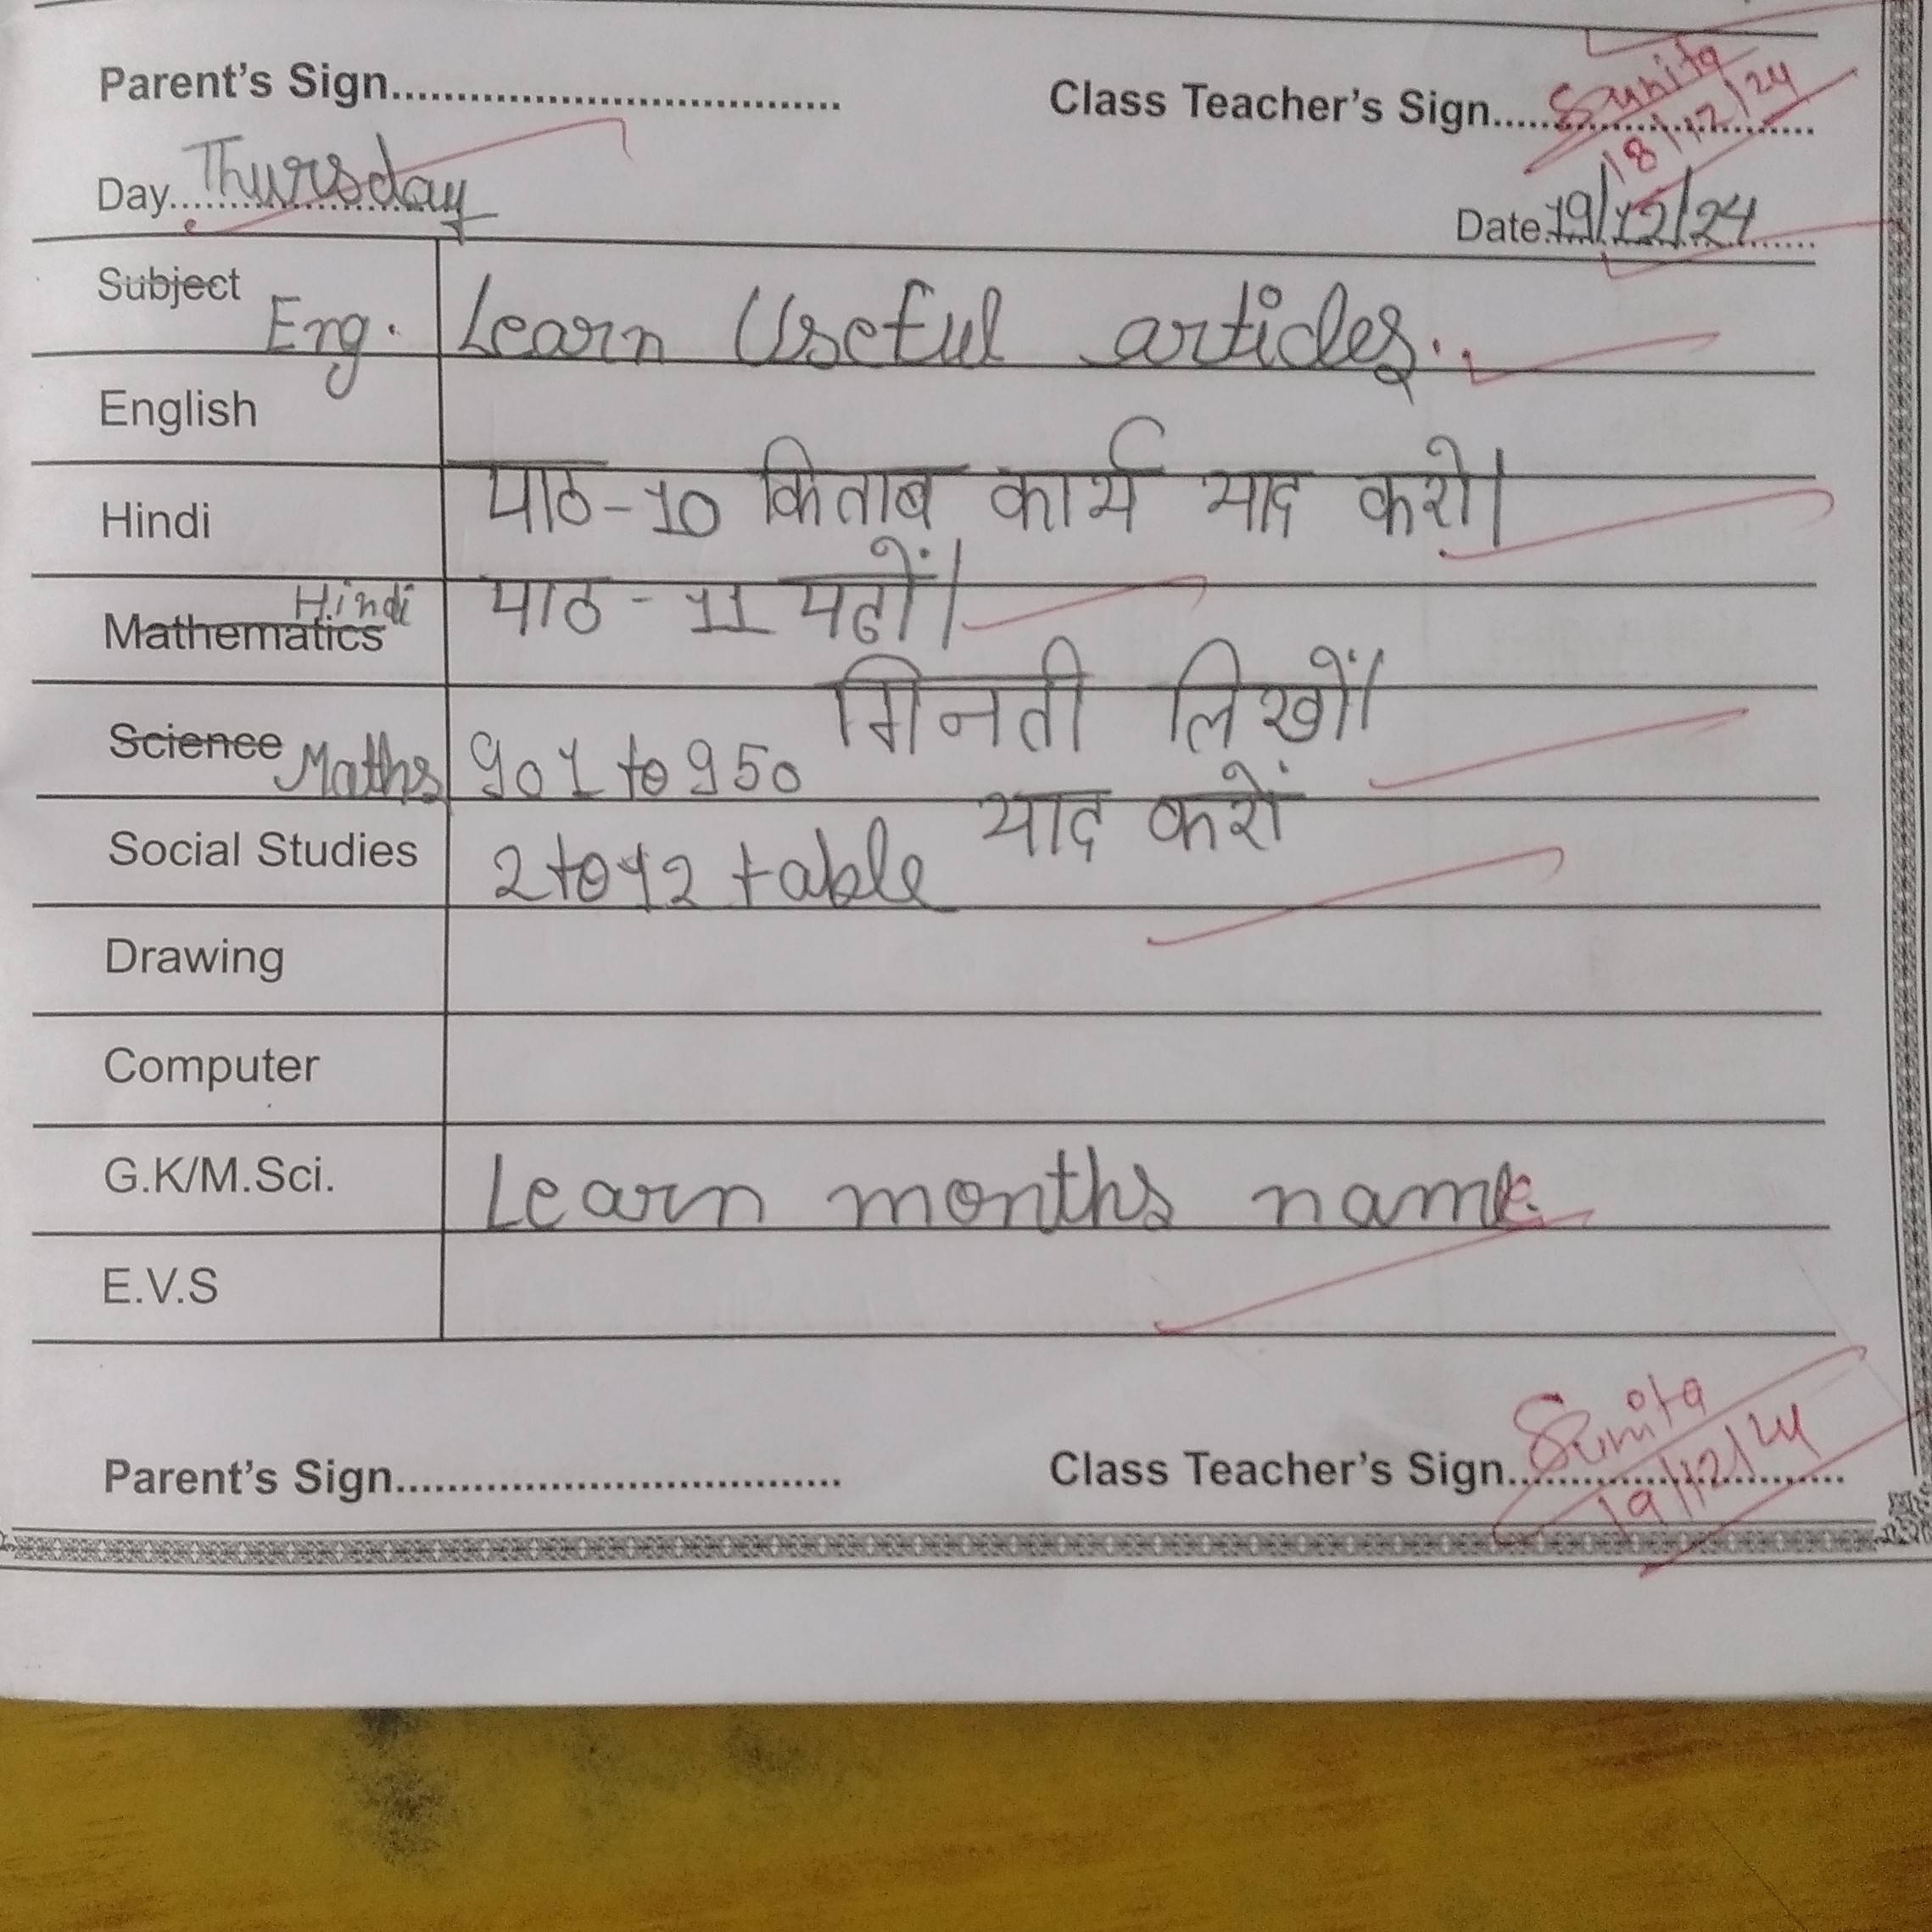 Parent's Sign.................................. Class Teacher's Sign........................ Sunita
18/12/24
Day.. Thursday
Date. 19/12/24
Subject Eng. Learn Useful articles.
English
Hindi पाठ-10 किताब कार्य याद करो।
Mathematics Hindi पाठ - 11 पढों।
Science Maths 901 to 950 गिनती लिखों।
Social Studies 2 to 12 table याद करों
Drawing
Computer
G.K/M.Sci. Learn months name.
E.V.S
Parent's Sign.................................. Class Teacher's Sign.......................... Sunita
19/12/24